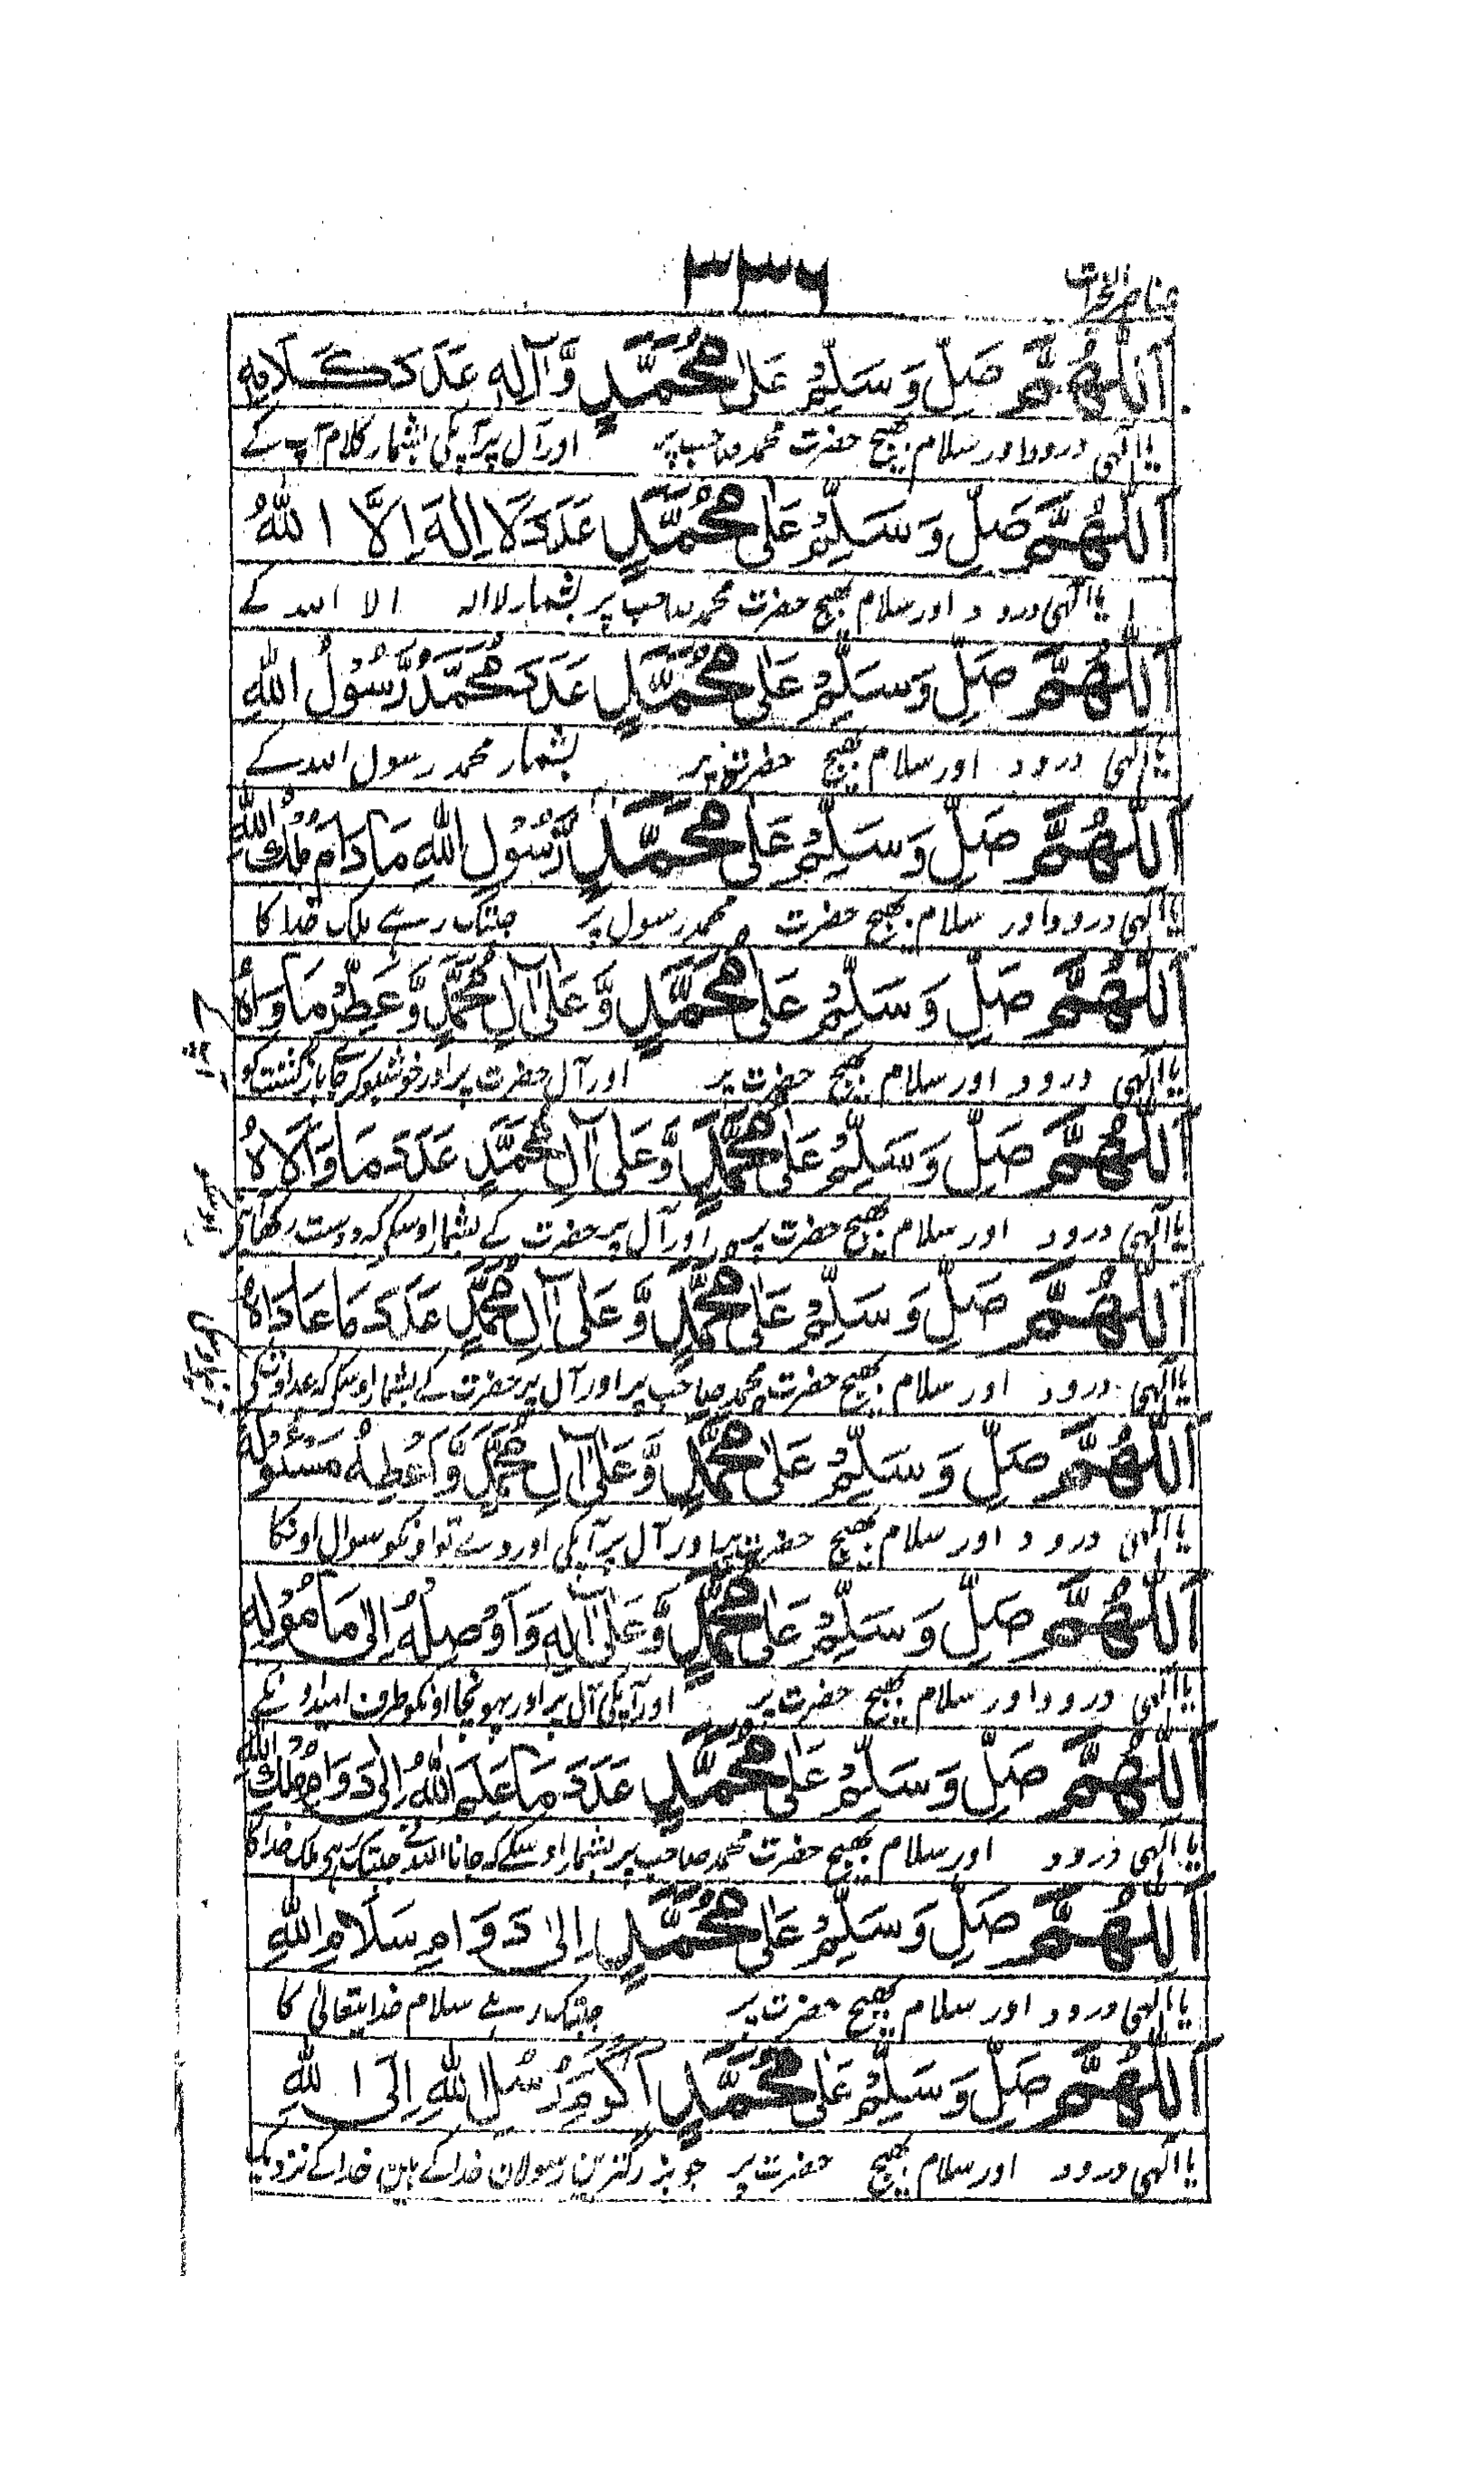 ۳۳۶
اَللّٰهُمَّ صَلِّ وَسَلِّمْ عَلٰى مُحَمَّدٍ وَّآلِهٖ عَدَدَ كَلَامِهٖ
یا الٰہی درود اور سلام بھیج حضرت محمد صاحب پر اور آل پر آپکی بشمار کلام آپ کے
اَللّٰهُمَّ صَلِّ وَسَلِّمْ عَلٰى مُحَمَّدٍ عَدَدَ لَا اِلٰهَ اِلَّا اللّٰهُ
یا الٰہی درود اور سلام بھیج حضرت محمد صاحب پر بشمار لا الہ الا اللہ کے
اَللّٰهُمَّ صَلِّ وَسَلِّمْ عَلٰى مُحَمَّدٍ عَدَدَ مُحَمَّدٌ رَّسُوْلُ اللّٰهِ
یا الٰہی درود اور سلام بھیج حضرت پر بشمار محمد رسول اللہ کے
اَللّٰهُمَّ صَلِّ وَسَلِّمْ عَلٰى مُحَمَّدٍ رَّسُوْلِ اللّٰهِ مَا دَامَ مُلْكُ اللّٰهِ
یا الٰہی درود اور سلام بھیج حضرت محمد رسول پر جبتک رہے ملک خدا کا
اَللّٰهُمَّ صَلِّ وَسَلِّمْ عَلٰى مُحَمَّدٍ وَّعَلٰى آلِ مُحَمَّدٍ وَّعَطِّرْ مَاْوَاهُ
یا الٰہی درود اور سلام بھیج حضرت پر اور آل حضرت پر اور خوشبو کر جاے بازگشت کو
اَللّٰهُمَّ صَلِّ وَسَلِّمْ عَلٰى مُحَمَّدٍ وَّعَلٰى آلِ مُحَمَّدٍ عَدَدَ مَا وَالَاهُ
یا الٰہی درود اور سلام بھیج حضرت پر اور آل پر حضرت کے بشمار اوسکے کہ دوست رکھا
اَللّٰهُمَّ صَلِّ وَسَلِّمْ عَلٰى مُحَمَّدٍ وَّعَلٰى آلِ مُحَمَّدٍ عَدَدَ مَا عَادَاهُ
یا الٰہی درود اور سلام بھیج حضرت محمد صاحب پر اور آل پر حضرت کے بشمار اوسکے کہ عداوت کی
اَللّٰهُمَّ صَلِّ وَسَلِّمْ عَلٰى مُحَمَّدٍ وَّعَلٰى آلِ مُحَمَّدٍ وَّاَعْطِهٖ مَسْئُوْلَهٗ
یا الٰہی درود اور سلام بھیج حضرت پر اور آل پر آپکی اور دے تو اونکو سوال اونکا
اَللّٰهُمَّ صَلِّ وَسَلِّمْ عَلٰى مُحَمَّدٍ وَّعَلٰى آلِهٖ وَاَوْصِلْهُ اِلٰى مَاْمُوْلِهٖ
یا الٰہی درود اور سلام بھیج حضرت پر اور آپکی آل پر اور پہونچا اونکو طرف امیدونکے
اَللّٰهُمَّ صَلِّ وَسَلِّمْ عَلٰى مُحَمَّدٍ عَدَدَ مَا عَلِمَ اللّٰهُ اِلٰى دَوَامِ مُلْكِ اللّٰهِ
یا الٰہی درود اور سلام بھیج حضرت محمد صاحب پر بشمار اوسکے کہ جانا اللہ نے جبتک ہے ملک خدا کا
اَللّٰهُمَّ صَلِّ وَسَلِّمْ عَلٰى مُحَمَّدٍ اِلٰى دَوَامِ سَلَامِ اللّٰهِ
یا الٰہی درود اور سلام بھیج حضرت پر جبتک رہے سلام خدایتعالیٰ کا
اَللّٰهُمَّ صَلِّ وَسَلِّمْ عَلٰى مُحَمَّدٍ اَكْرَمِ رُسُلِ اللّٰهِ اِلَى اللّٰهِ
یا الٰہی درود اور سلام بھیج حضرت پر جو بزرگترین رسولان خدا کے ہیں خدا کے نزدیک